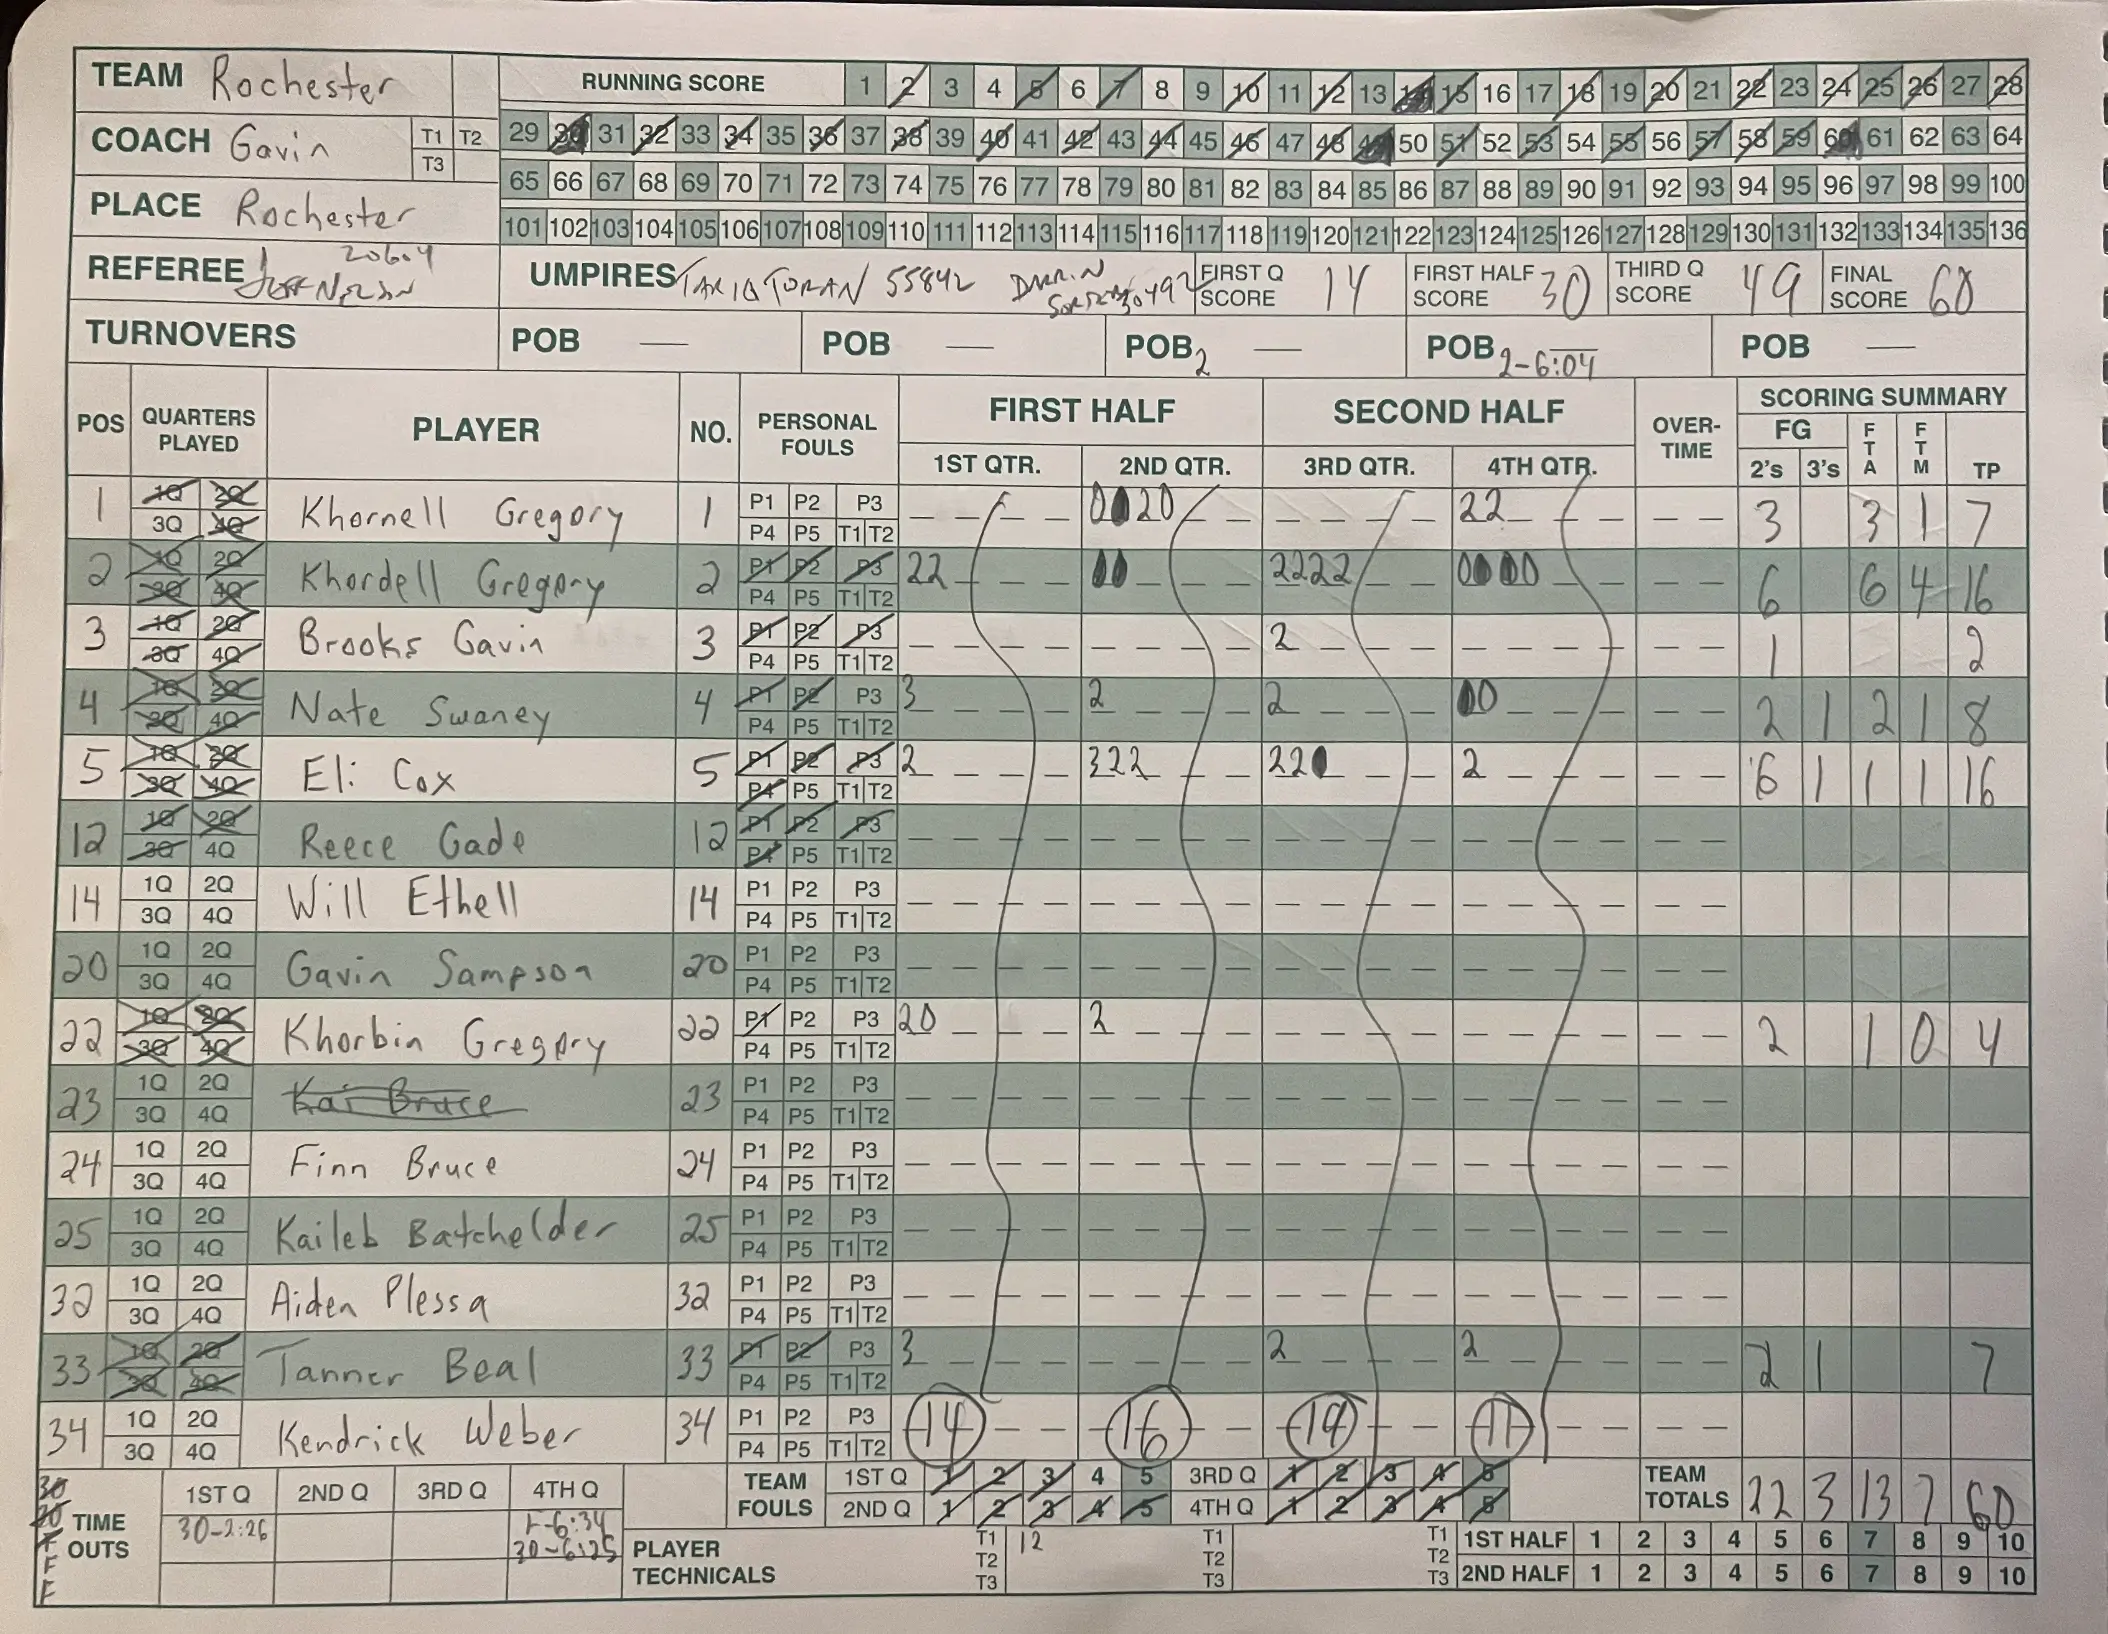 TEAM Rochester RUNNING SCORE 1 2 3 4 5 6 7 8 9 10 11 12 13 14 15 16 17 18 19 20 21 22 23 24 25 26 27 28
COACH Gavin T1 T2 T3 29 30 31 32 33 34 35 36 37 38 39 40 41 42 43 44 45 46 47 48 49 50 51 52 53 54 55 56 57 58 59 60 61 62 63 64
65 66 67 68 69 70 71 72 73 74 75 76 77 78 79 80 81 82 83 84 85 86 87 88 89 90 91 92 93 94 95 96 97 98 99 100
PLACE Rochester 101 102 103 104 105 106 107 108 109 110 111 112 113 114 115 116 117 118 119 120 121 122 123 124 125 126 127 128 129 130 131 132 133 134 135 136
REFEREE 20604 UMPIRES TARIQ TORAN 55842 FIRST Q SCORE 14 FIRST HALF SCORE 30 THIRD Q SCORE 49 FINAL SCORE 60
TURNOVERS POB — POB — POB 2 — POB 2-6:04 POB —
POS QUARTERS PLAYED PLAYER NO. PERSONAL FOULS FIRST HALF SECOND HALF OVER-TIME SCORING SUMMARY
1ST QTR. 2ND QTR. 3RD QTR. 4TH QTR. FG 2's 3's FTA FTM TP
1 1Q 2Q 3Q 4Q Khornell Gregory 1 P1 P2 P3 P4 P5 T1 T2 0020 22 3 3 1 7
2 1Q 2Q 3Q 4Q Khordell Gregory 2 P1 P2 P3 P4 P5 T1 T2 22 00 2222 0000 6 6 4 16
3 1Q 2Q 3Q 4Q Brooks Gavin 3 P1 P2 P3 P4 P5 T1 T2 2 1 2
4 1Q 2Q 3Q 4Q Nate Swaney 4 P1 P2 P3 P4 P5 T1 T2 3 2 2 00 2 1 2 1 8
5 1Q 2Q 3Q 4Q Eli Cox 5 P1 P2 P3 P4 P5 T1 T2 2 322 220 2 6 1 1 1 16
12 1Q 2Q 3Q 4Q Reece Gade 12 P1 P2 P3 P4 P5 T1 T2
14 1Q 2Q 3Q 4Q Will Ethell 14 P1 P2 P3 P4 P5 T1 T2
20 1Q 2Q 3Q 4Q Gavin Sampson 20 P1 P2 P3 P4 P5 T1 T2
22 1Q 2Q 3Q 4Q Khorbin Gregory 22 P1 P2 P3 P4 P5 T1 T2 20 2 2 1 0 4
23 1Q 2Q 3Q 4Q Kai Bruce 23 P1 P2 P3 P4 P5 T1 T2
24 1Q 2Q 3Q 4Q Finn Bruce 24 P1 P2 P3 P4 P5 T1 T2
25 1Q 2Q 3Q 4Q Kaileb Batchelder 25 P1 P2 P3 P4 P5 T1 T2
32 1Q 2Q 3Q 4Q Aiden Plessa 32 P1 P2 P3 P4 P5 T1 T2
33 1Q 2Q 3Q 4Q Tanner Beal 33 P1 P2 P3 P4 P5 T1 T2 3 2 2 2 1 7
34 1Q 2Q 3Q 4Q Kendrick Weber 34 P1 P2 P3 P4 P5 T1 T2 14 16 19 11
30 30 F F F TIME OUTS 1ST Q 2ND Q 3RD Q 4TH Q TEAM FOULS 1ST Q 1 2 3 4 5 3RD Q 1 2 3 4 5 TEAM TOTALS 22 3 13 7 60
30-2:26 F-6:34 2ND Q 1 2 3 4 5 4TH Q 1 2 3 4 5
30-6:25 PLAYER TECHNICALS T1 12 T2 T3 T1 T2 T3 T1 T2 T3 1ST HALF 1 2 3 4 5 6 7 8 9 10
2ND HALF 1 2 3 4 5 6 7 8 9 10